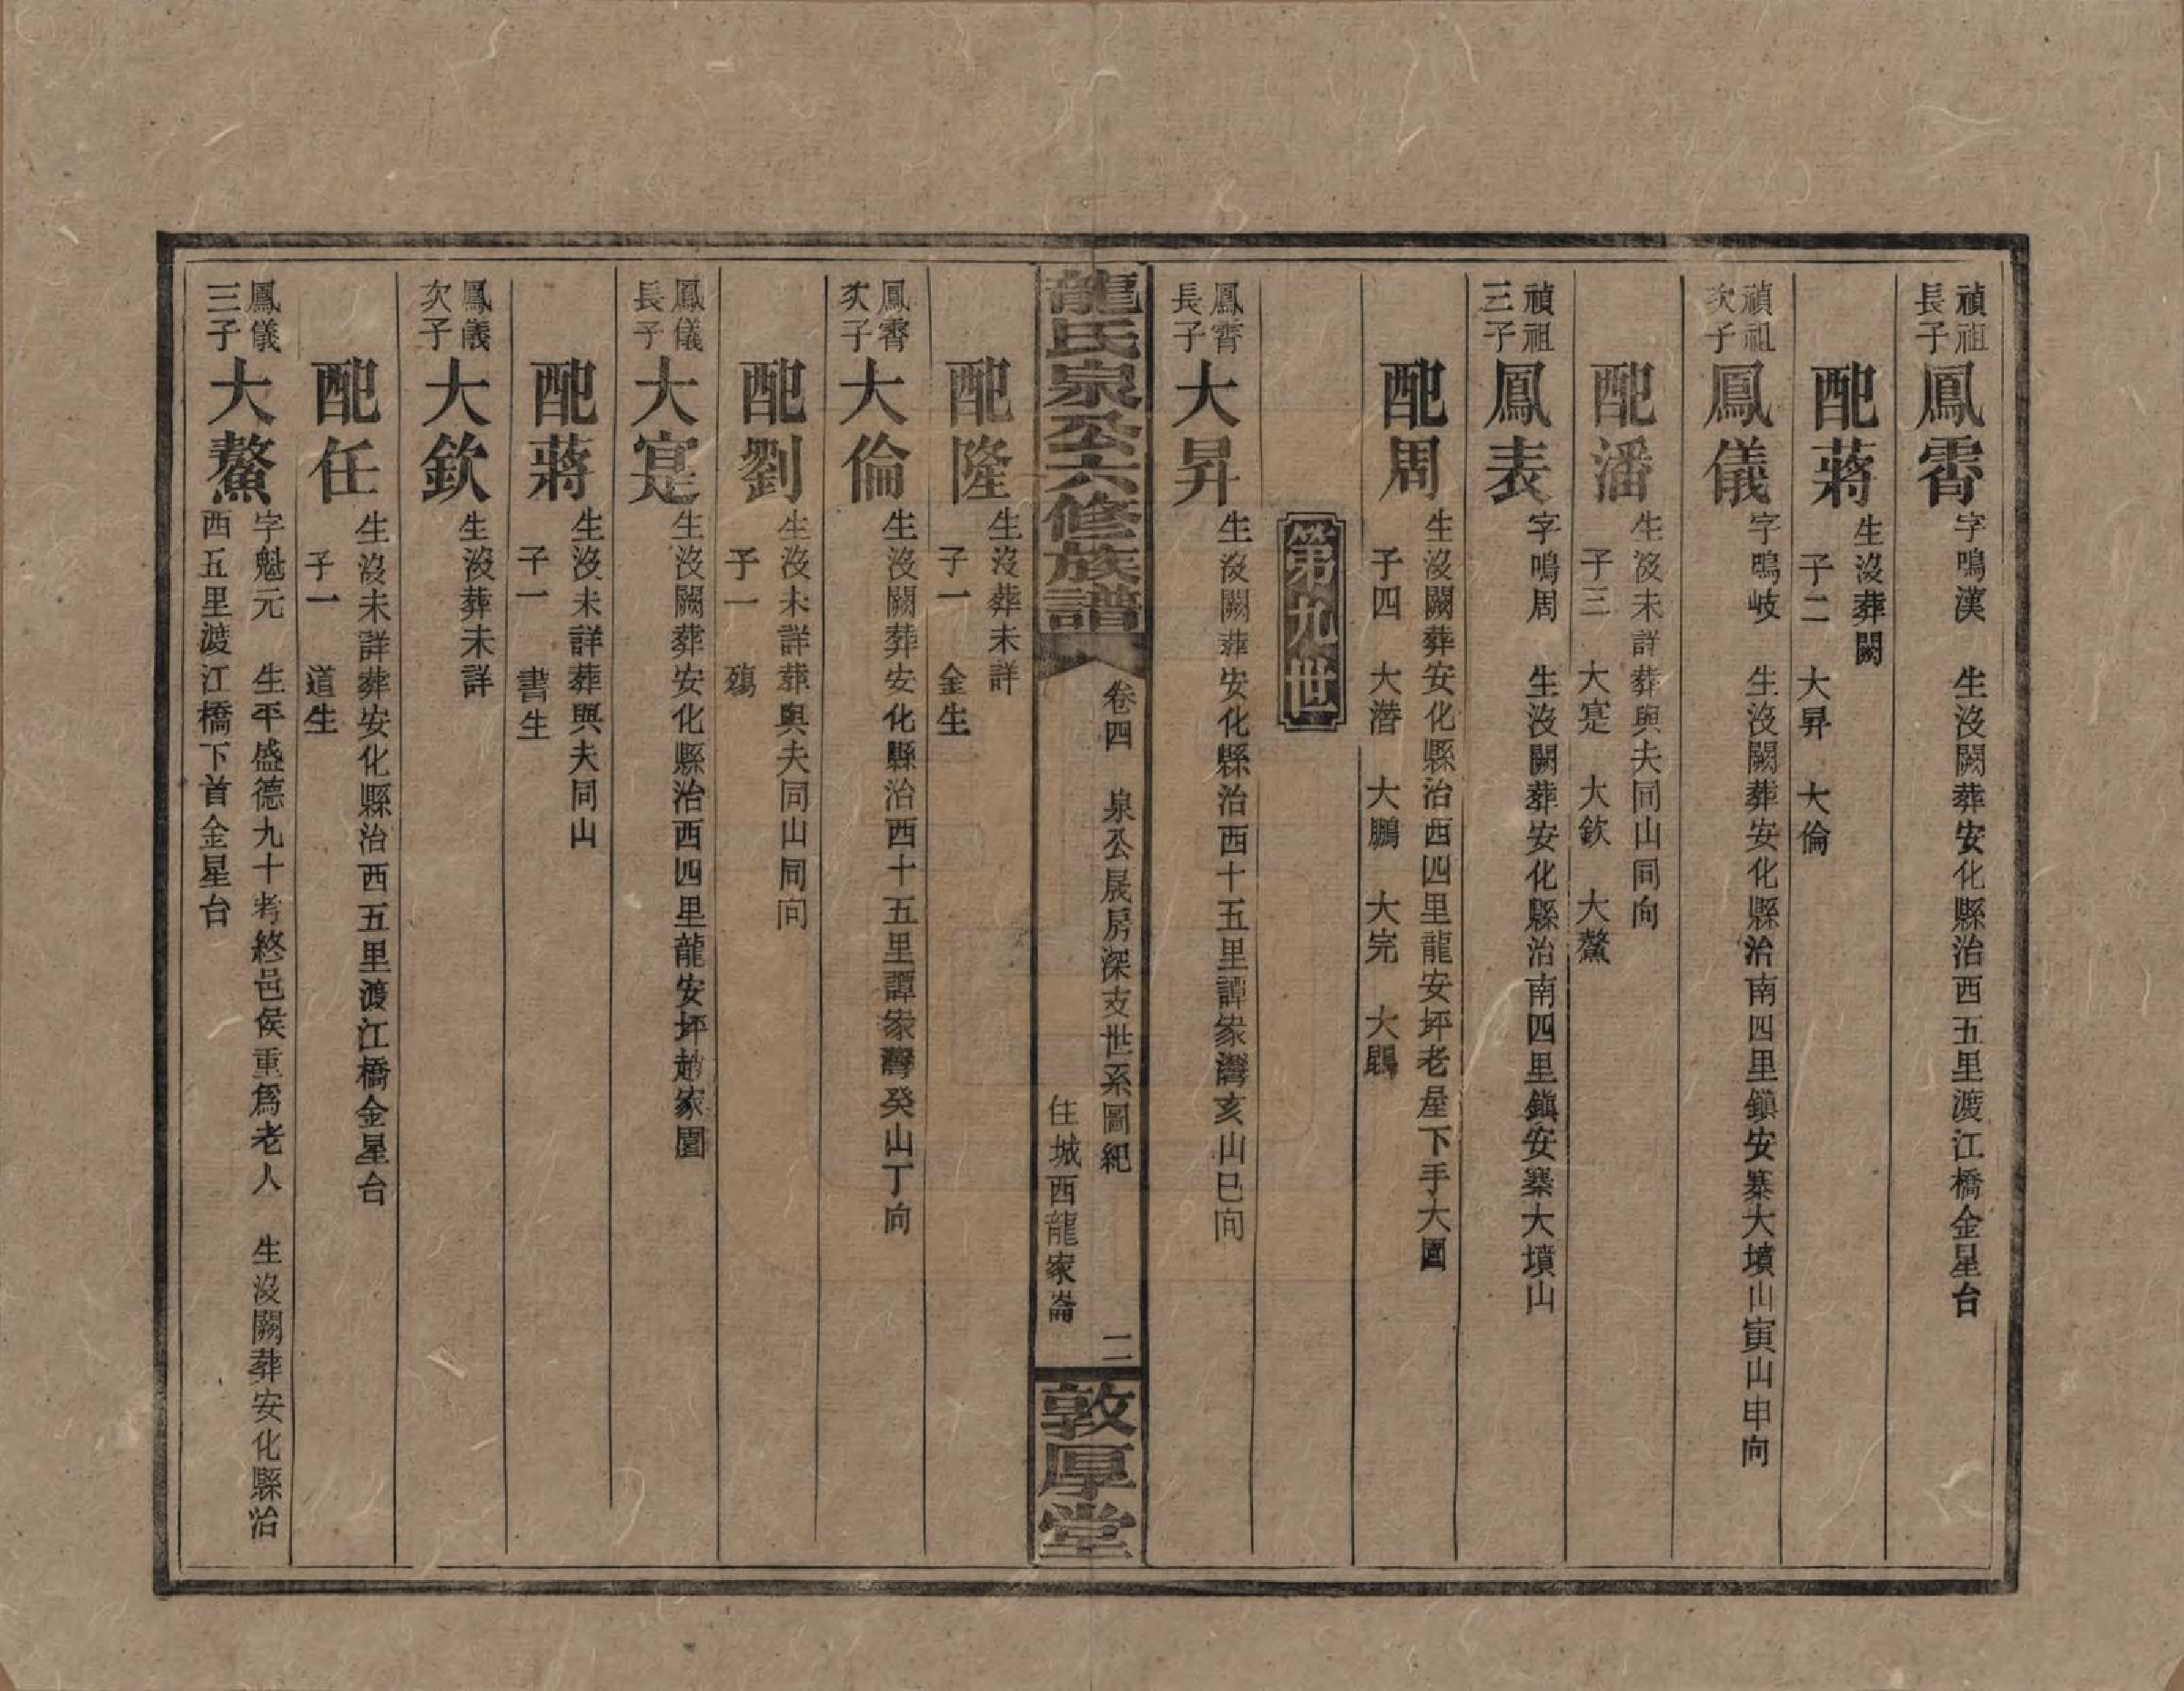 禎祖
長子
鳳霄
字鳴漢　生沒闕葬安化縣治西五里渡江橋金星台
配蔣
生沒葬闕
子二　大昇　大倫
禎祖
次子
鳳儀
字鳴岐　生沒闕葬安化縣治南四里鎭安寨大墳山寅山申向
配潘
生沒未詳葬與夫同山同向
子三　大寔　大欽　大鰲
禎祖
三子
鳳表
字鳴周　生沒闕葬安化縣治南四里鎭安寨大墳山
配周
生沒闕葬安化縣治西四里龍安坪老屋下手大園
子四　大潛　大鵬　大完　大鵾
第九世
鳳霄
長子
大昇
生沒闕葬安化縣治西十五里譚家灣亥山巳向
龍氏泉公六修族譜
卷四　泉公晟房深支世系圖紀　二
住城西龍家崙
敦厚堂
配隆
生沒葬未詳
子一　金生
鳳霄
次子
大倫
生沒闕葬安化縣治西十五里譚家灣癸山丁向
配劉
生沒未詳葬與夫同山同向
子一　殤
鳳儀
長子
大寔
生沒闕葬安化縣治西四里龍安坪趙家園
配蔣
生沒未詳葬與夫同山
子一　書生
鳳儀
次子
大欽
生沒葬未詳
配任
生沒未詳葬安化縣治西五里渡江橋金星台
子一　道生
鳳儀
三子
大鰲
字魁元　生平盛德九十考終邑侯重爲老人　生沒闕葬安化縣治
西五里渡江橋下首金星台